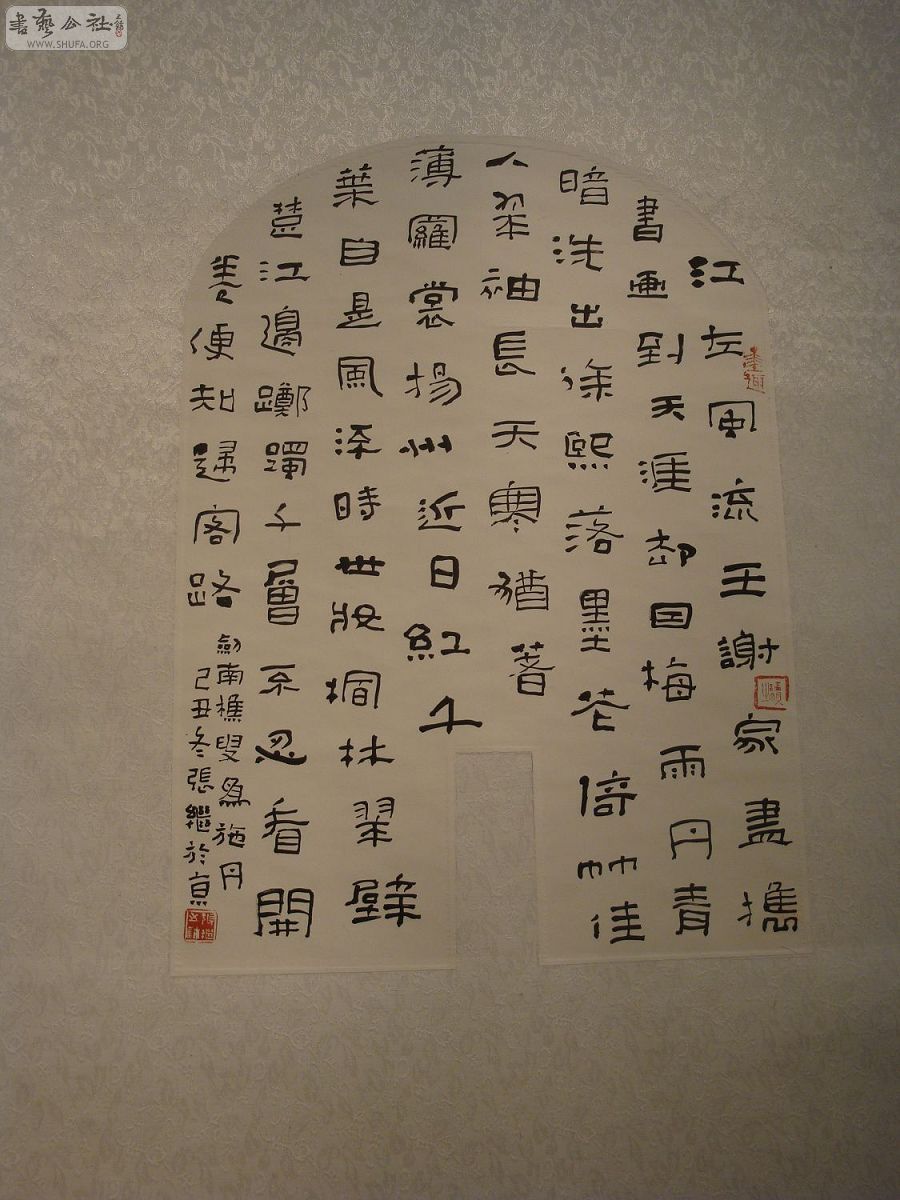 書藝公社
WWW.SHUFA.ORG
江左風流王謝家盡攜
書画到天涯却因梅雨丹青
暗洗出徐熙落墨花倚竹佳
人翠袖長天寒猶著
薄羅裳揚州近日紅千
葉自是風流時世妝楓林翠壁
楚江邊躑躅千層不忍看開
卷便知歸客路
劍南樵叟為施丹
己丑冬張繼於京